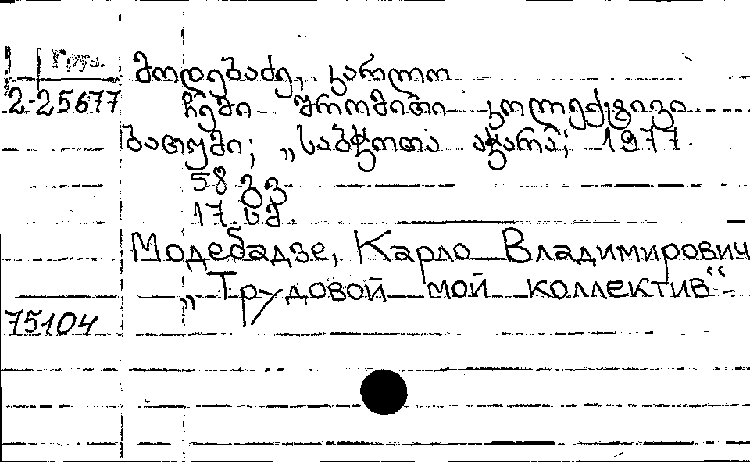 Груз.
2-25677
მოდებაძე, კარლო
ჩემი შრომითი კოლექტივი
ბათუმი; „საბჭოთა აჭარა; 1977
58 გვ
17 სმ.
Модебадзе, Карло Владимирович
„Трудовой мой коллектив“
75104